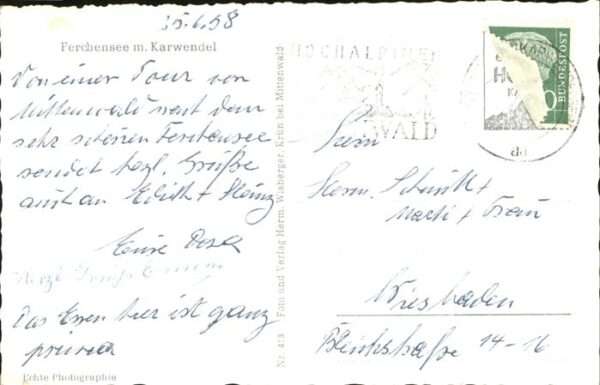 25.6.58
Ferchensee m. Karwendel
Von einer Tour von
Mittenwald nach dem
sehr schönen Ferchensee
sendet herzl. Grüße
auch an Edith + Heinz
Eure Rosa
Herzl. Grüße
Das Essen hier ist ganz
prima
Echte Photographie
Nr. 413 Foto und Verlag Herm. Wisberger, Krün bei Mittenwald
HOCHALPINER
WALD
BUNDESPOST
Herrn
Wiesbaden
Bleichstraße 14-16